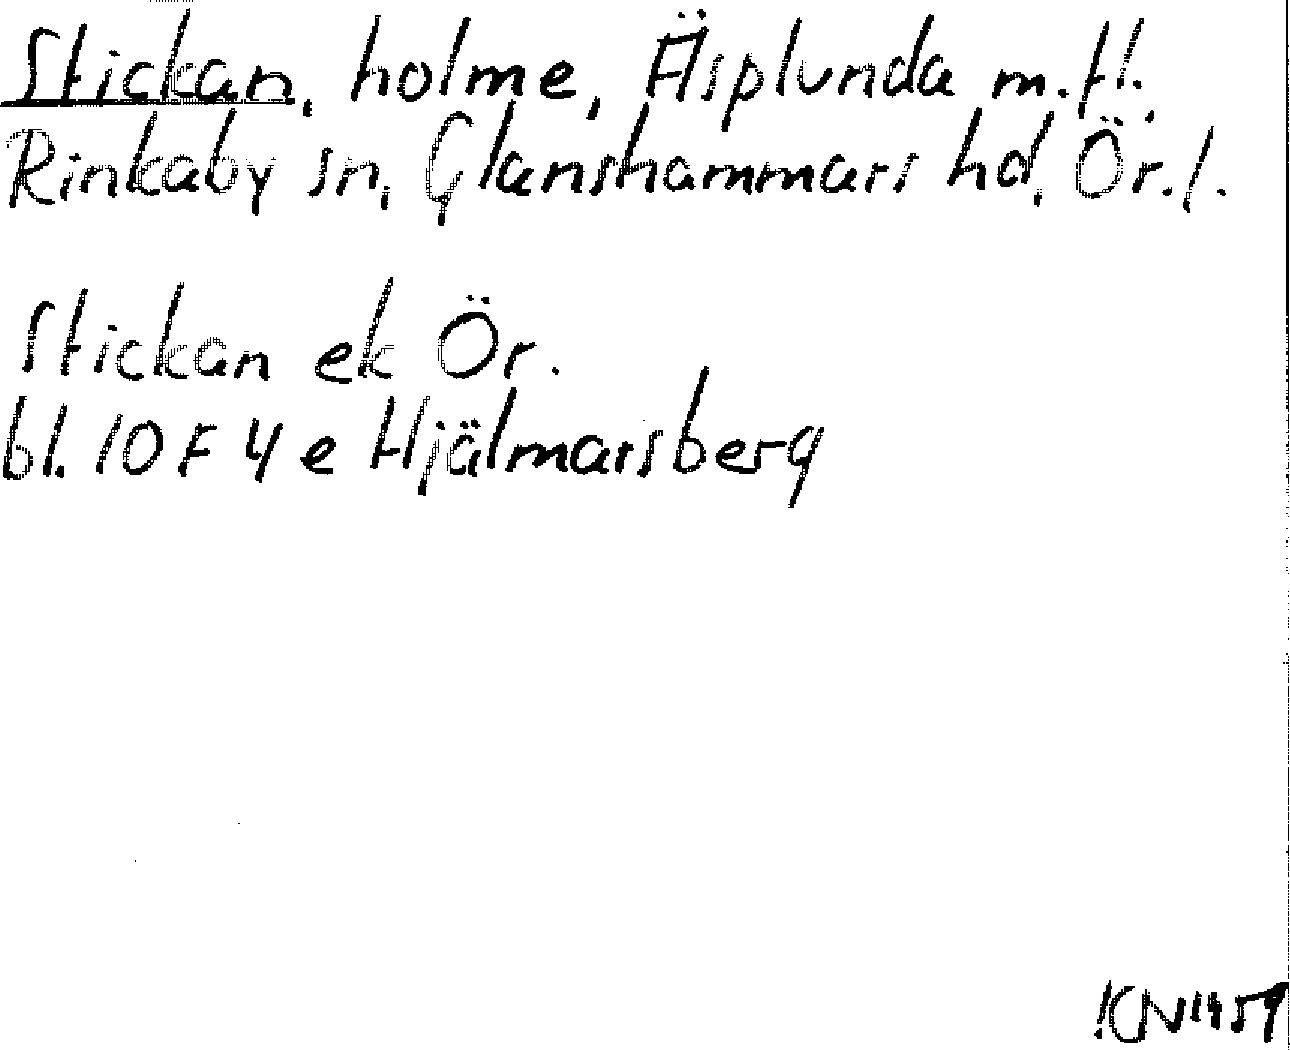 Stickan, holme, Äsplunda m.fl.,
Rinkaby sn, Glanshammars hd, Ör.l.
Stickan ek Ör.
bl. 10 F 4 e Hjälmarsberg